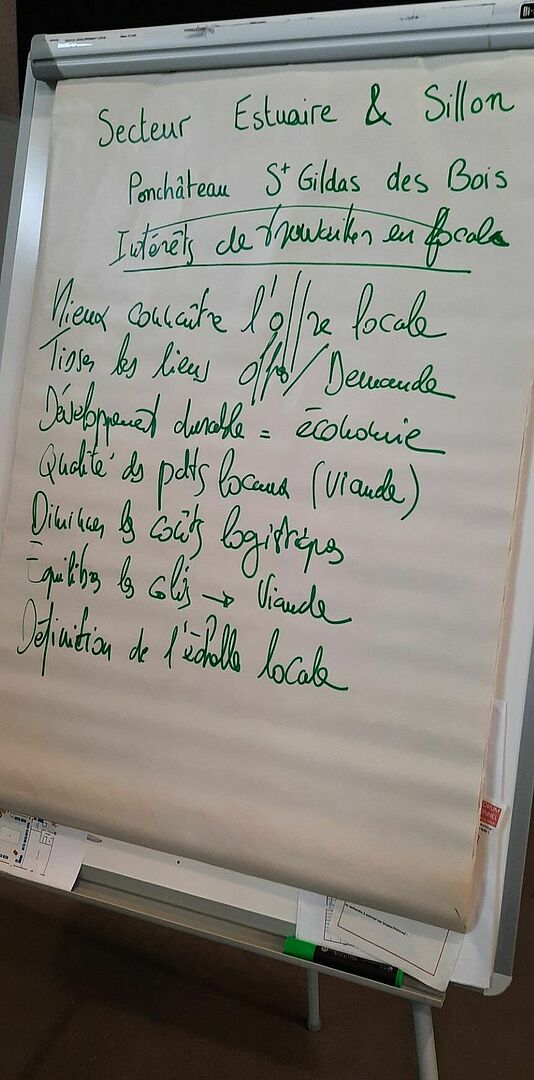 Secteur Estuaire & Sillon
Ponchâteau St Gildas des Bois
Intérêts de travailler en local
Mieux connaître l'offre locale
Tisser les liens offre/Demande
Développement durable = économie
Qualité des pdts locaux (Viande)
Diminuer les coûts logistiques
Équilibrer les colis → Viande
Définition de l'échelle locale